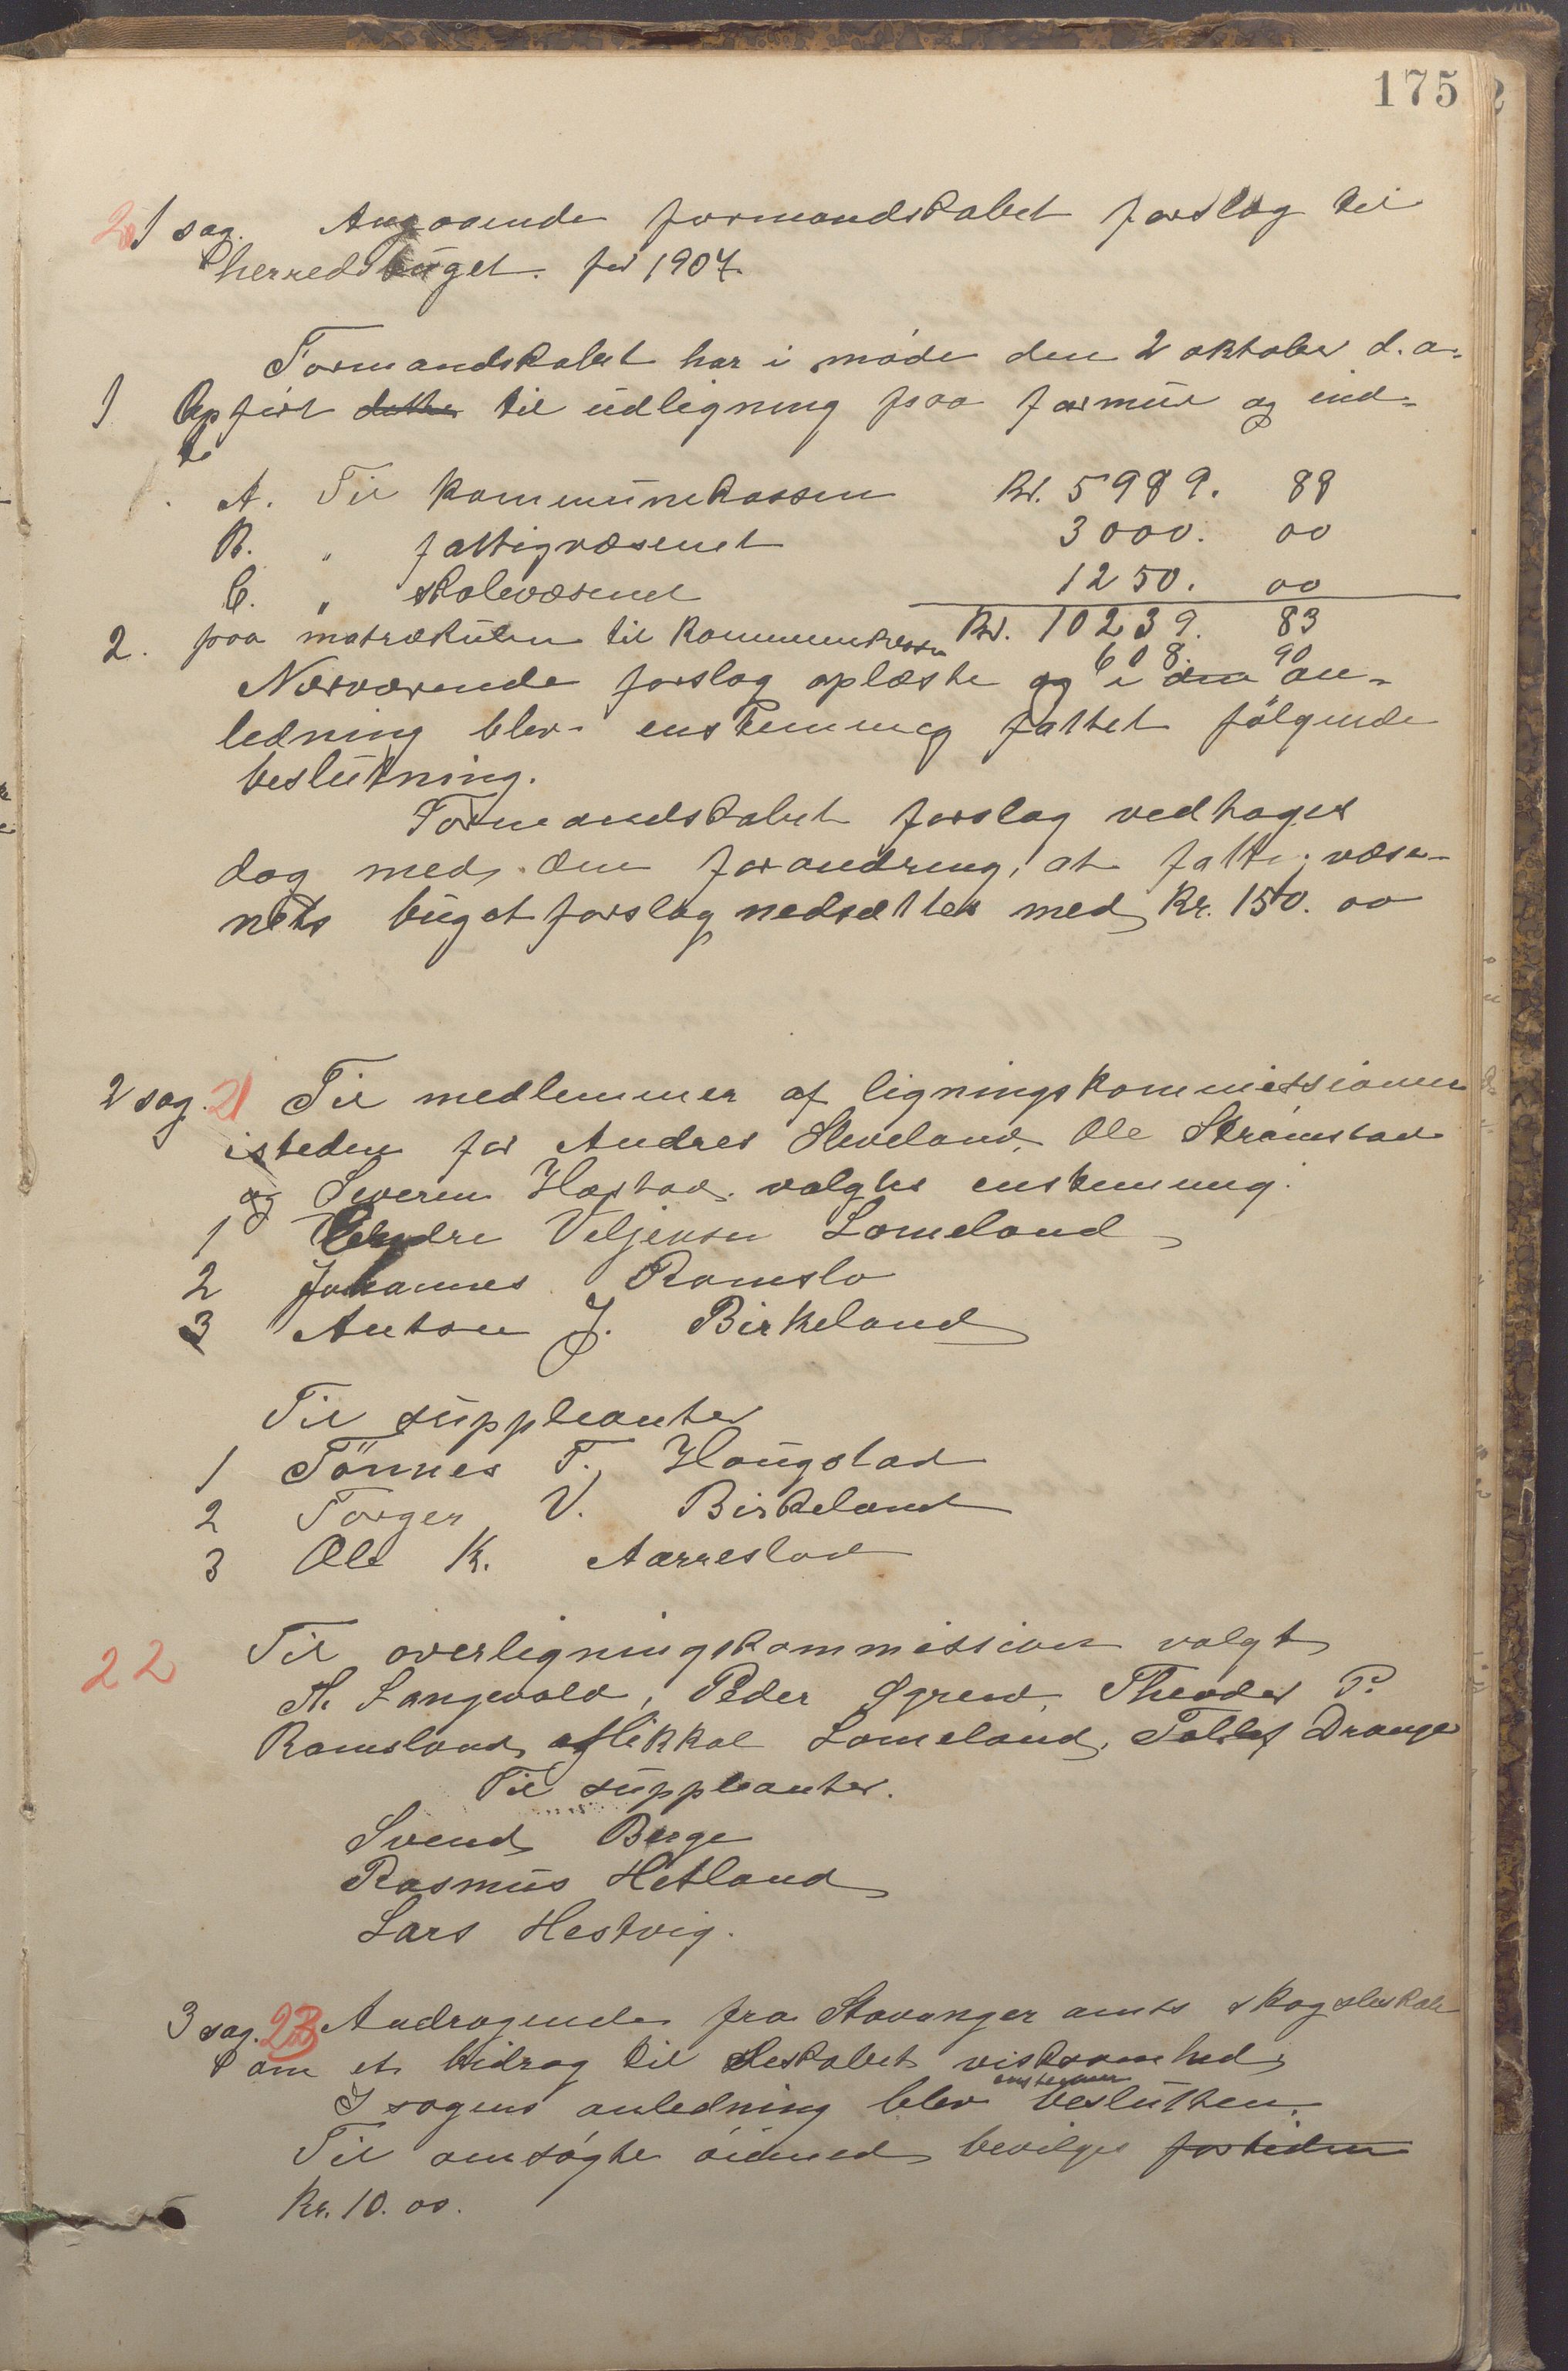 175
20 1 sag. Angaaende formandskabet forslag til
herredsbüget. for 1907.
Formandskabet har i møde den 2 oktober d.a.
1 Opført dette til üdligning paa formüe og ind-
A. Til kommünekassen Kr. 5989. 88
B. " fattigvæsenet 3000. 00
C. " skolevæsenet 1250. 00
Kr. 10239. 83
2. paa matrækülen til kommunekassen 608. 90
Nærværende forslag oplæste og i den an-
ledning blev enstemmig fattet følgende
beslütning.
Formandskabet forslag vedtages
dog med den forandring, at fattigvæse-
nets büget forslag nedsættes med Kr. 150. 00
2 sag. 21 Til medlemmer af ligningskommissionen
isteden for Andres Sleveland, Ole Strømstad
og Severin Hæstad valgtes enstemmig.
1 Endre Veljensen Lomeland
2 Johannes Ramslo
3 Anton J. Birkeland
Til süppleanter
1 Tönnes T. Haügstad
2 Torger V. Birkeland
3 Ole K. Aarrestad
22 Til overligningskommission valgt
Th. Langevald, Peder Øgreid, Theodor P.
Ramsland, Mikkal Lomeland, Tollef Drange
Til süppleanter.
Svend Berge
Rasmüs Hetland
Lars Hestvig.
3 sag. 23 Andragende fra Stavanger amts skogselskab
om et bidrag til selskabet virksomhed
enstemmi
I sagens anledning blev beslütten.
Til omsøgte øiemed bevilges fortiden
Kr. 10. 00.